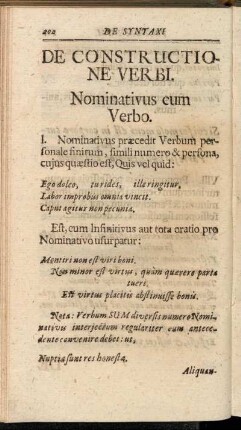 202 DE SYNTAXI
DE CONSTRUCTIO-
NE VERBI.
Nominativus cum
Verbo.
I. Nominativus præcedit Verbum per-
sonale finitum, simili numero & persona,
cujus quæstio est, Quis vel quid:
Ego doleo, tu rides, ille ringitur,
Labor improbus omnia vincit.
Caput agitur non pecunia.
Est, cum Infinitivus aut tota oratio pro
Nominativo usurpatur:
Mentiri non est viri boni.
Non minor est virtus, quàm quærere parta
tueri.
Est virtus placitis abstinuisse bonis.
Nota: Verbum SUM diversis numero Nomi-
nativis interjectum regulariter cum antece-
dente convenire debet: ut,
Nuptiæ sunt res honesta.
Aliquan-